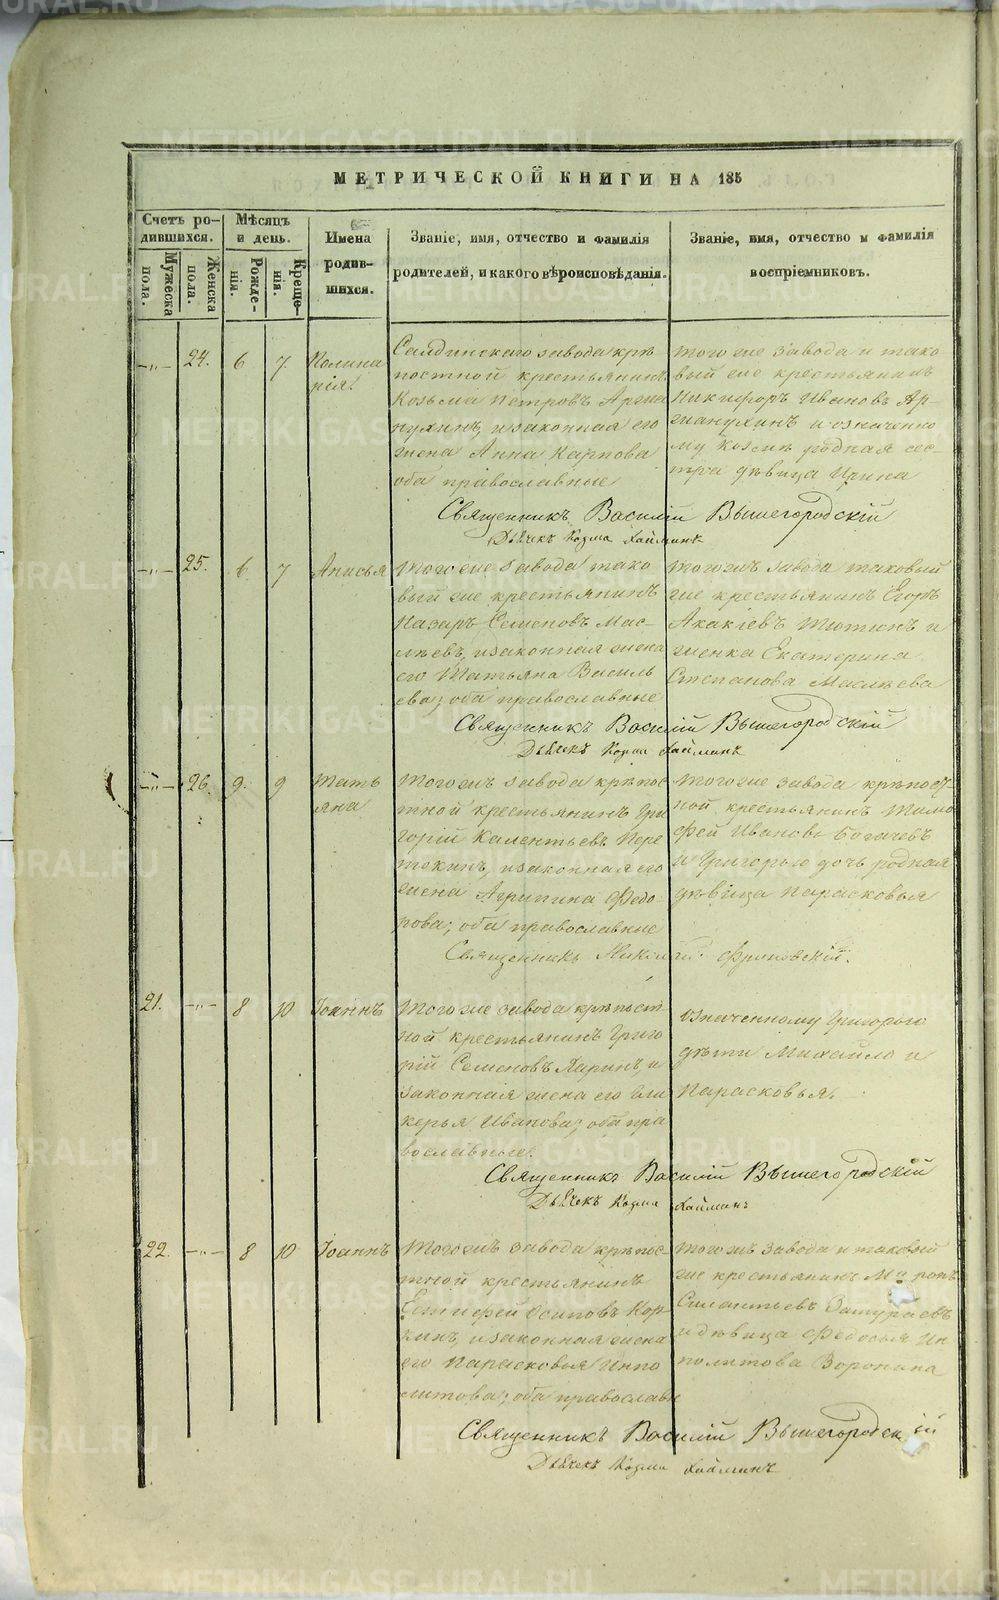 МЕТРИЧЕСКОЙ КНИГИ НА 185
Счетъ ро-
дившихся.
Мужеска
пола.
Женска
пола.
Мѣсяцъ
и день.
Рожде-
нія.
Креще-
нія.
Имена
родив-
шихся.
Званіе, имя, отчество и фамилія
родителей, и какого вѣроисповѣданія.
Званіе, имя, отчество и фамилія
воспріемниковъ.
24. 6 7.
Полина
рія
Салдинскаго завода крѣ
постной крестьянинъ
Козьма Петровъ
и законная его
жена Анна Карпова
оба православные
того же завода и тако
вый же крестьянинъ
Никифоръ Ивановъ Ар-
и означенно
му Козмѣ родная сес-
тра дѣвица Ирина
Священникъ Василій Вышегородскій
Дьячекъ Козма Хайминъ
25. 6. 7
Анисья
Того же завода тако
вый же крестьянинъ
Назаръ Семеновъ Мас-
лѣевъ, и законная жена
его Татьяна Василь
ева; оба православные
Того жъ завода таковый
же крестьянинъ Егоръ
Акакіевъ Тютинъ и
женка Екатерина
Степанова Маслѣева
Священникъ Василій Вышегородскій
Дьячекъ Козма Хайминъ
26. 9. 9
Тать
яна
Того жъ завода крѣпос
тной крестьянинъ Гри
горій Калентьевъ Пере
текинъ, и законная его
жена Агрипина Ѳедо
рова; оба православные
Того же завода крѣпост
ной крестьянинъ Тимо
фей Ивановъ Богачевъ
и Григорью дочь родная
дѣвица Парасковья
Священникъ Николай
21. 8 10
Іоаннъ
Того же завода крѣпост
ной крестьянинъ Григо
рій Семеновъ Ларинъ, и
законная жена его Гли
керья Иванова; оба пра
вославные.
означенному Григорью
дѣти Михайло и
Парасковья
Священникъ Василій Вышегородскій
Дьячекъ Козма Хайминъ
22. 8 10
Іоаннъ
Того жъ завода крѣпос
тной крестьянинъ
Евтифей Осиповъ Кор
и законная жена
его Парасковья Иппо
литова; оба православн
Того жъ завода и таковый
же крестьянинъ Миронъ
Силантьевъ
и дѣвица Ѳедосья Ип
политова Воронина
Священникъ Василій Вышегородскій
Дьячекъ Козма Хайминъ
METRIKI.GASO-URAL.RU